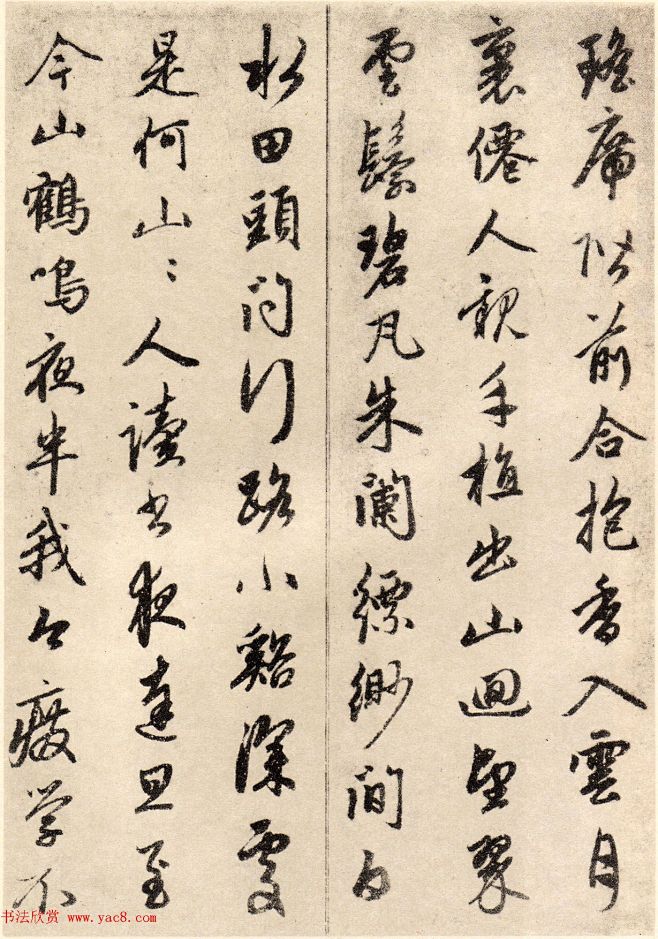 瑤席階前合抱香入雲月
裏僊人親手植出山迴望翠
雲鬟碧瓦朱闌縹緲間白
水田頭問行路小谿深處
是何山〻人讀書夜達旦至
今山鶴鳴夜半我今癈学不
书法欣赏 www.yac8.com